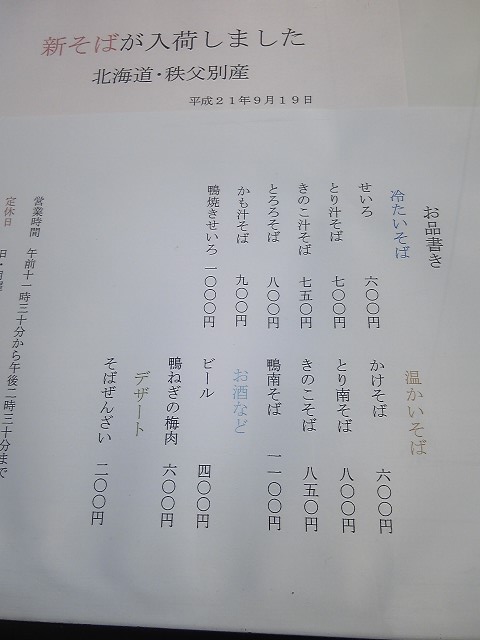 新そばが入荷しました
北海道・秩父別産
平成２１年９月１９日
お品書き
冷たいそば
せいろ 六〇〇円
とり汁そば 七〇〇円
きのこ汁そば 七五〇円
とろろそば 八〇〇円
かも汁そば 九〇〇円
鴨焼きせいろ 一〇〇〇円
温かいそば
かけそば 六〇〇円
とり南そば 八〇〇円
きのこそば 八五〇円
鴨南そば 一一〇〇円
お酒など
ビール 四〇〇円
鴨ねぎの梅肉 六〇〇円
デザート
そばぜんざい 二〇〇円
営業時間 午前十一時三十分から午後二時三十分まで
定休日